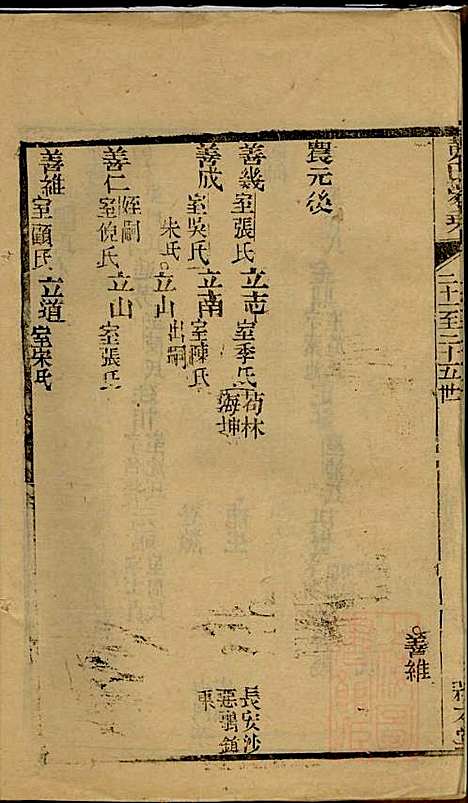 二十至二十五世
善維
農元後
善幾 室張氏 立志 室季氏 苟林 海坤
長安沙
惡鵝鎮
東
善成 室吳氏 立南 室陳氏
朱氏 立山 出嗣
善仁 姪嗣 室倪氏 立山 室張氏
善維 室顧氏 立道 室宋氏